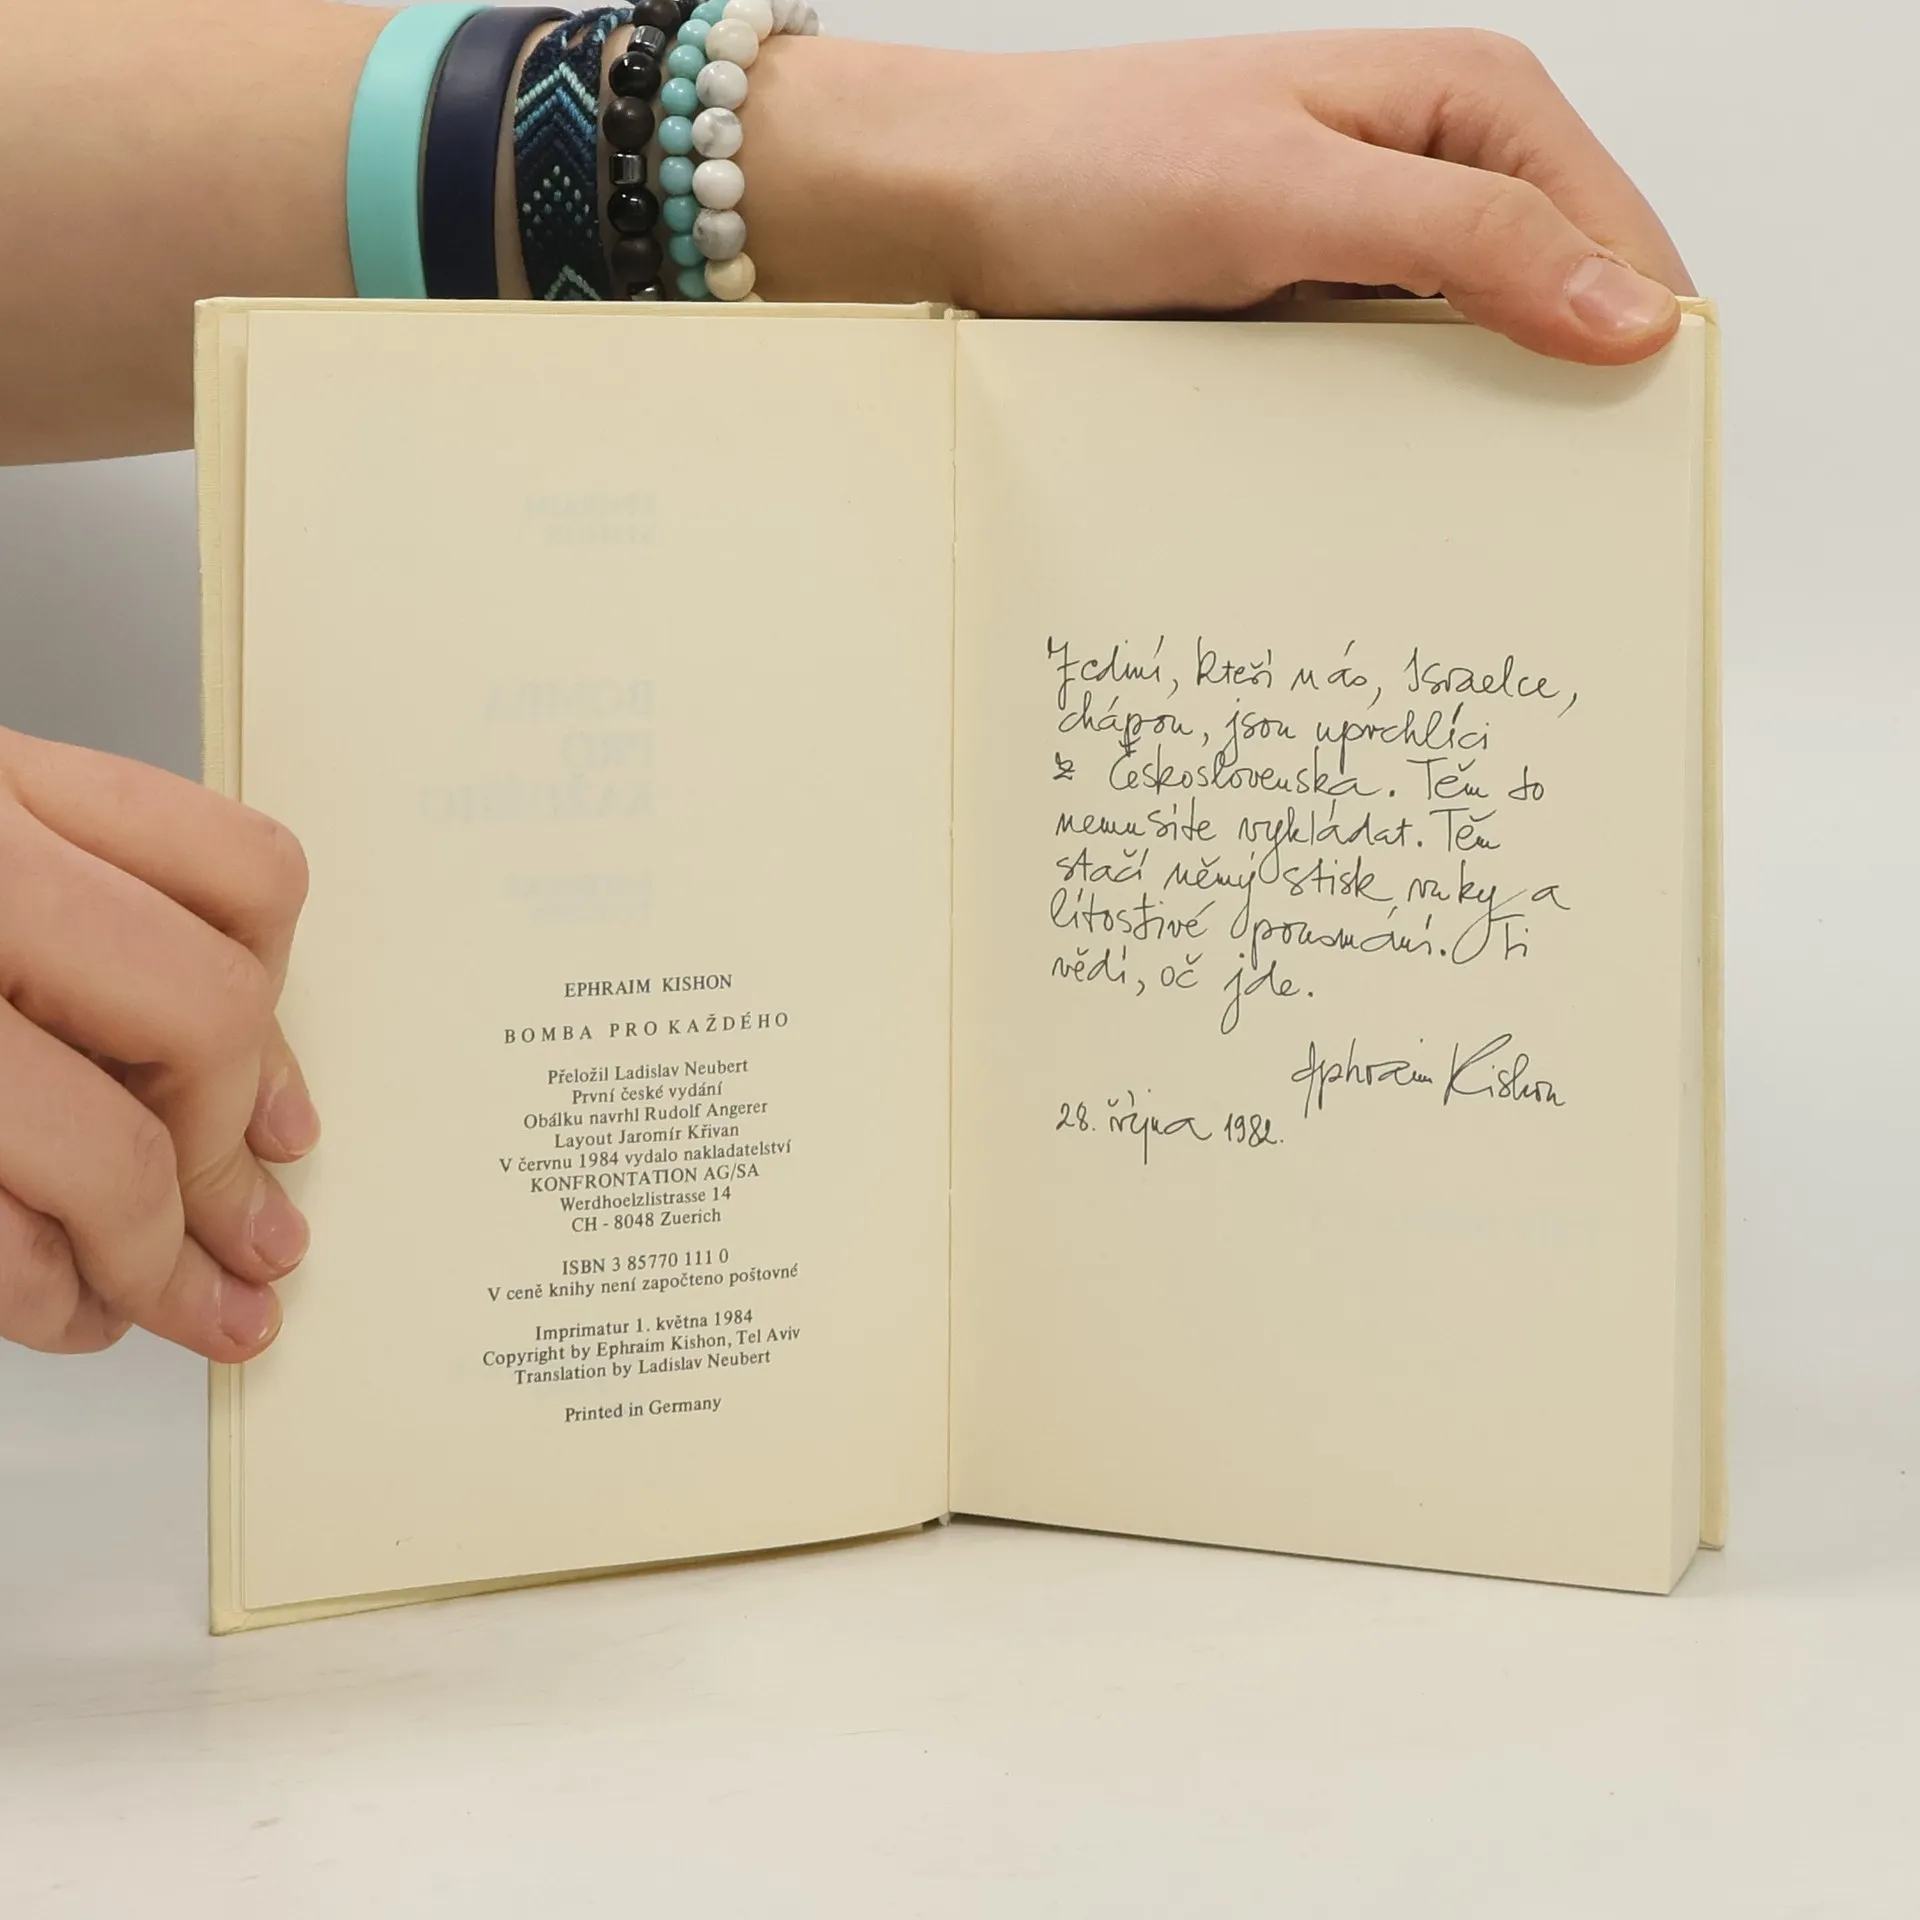 EPHRAIM KISHON
BOMBA PRO KAŽDÉHO
Přeložil Ladislav Neubert
První české vydání
Obálku navrhl Rudolf Angerer
Layout Jaromír Křivan
V červnu 1984 vydalo nakladatelství
KONFRONTATION AG/SA
Werdhoelzlistrasse 14
CH - 8048 Zuerich
ISBN 3 85770 111 0
V ceně knihy není započteno poštovné
Imprimatur 1. května 1984
Copyright by Ephraim Kishon, Tel Aviv
Translation by Ladislav Neubert
Printed in Germany
Jediní, kteří nás, Israelce,
chápou, jsou uprchlíci
z Československa. Těm to
nemusíte vykládat. Těm
stačí němý stisk ruky a
lítostivé pousmání. Ti
vědí, oč jde.
Ephraim Kishon
28. října 1982.